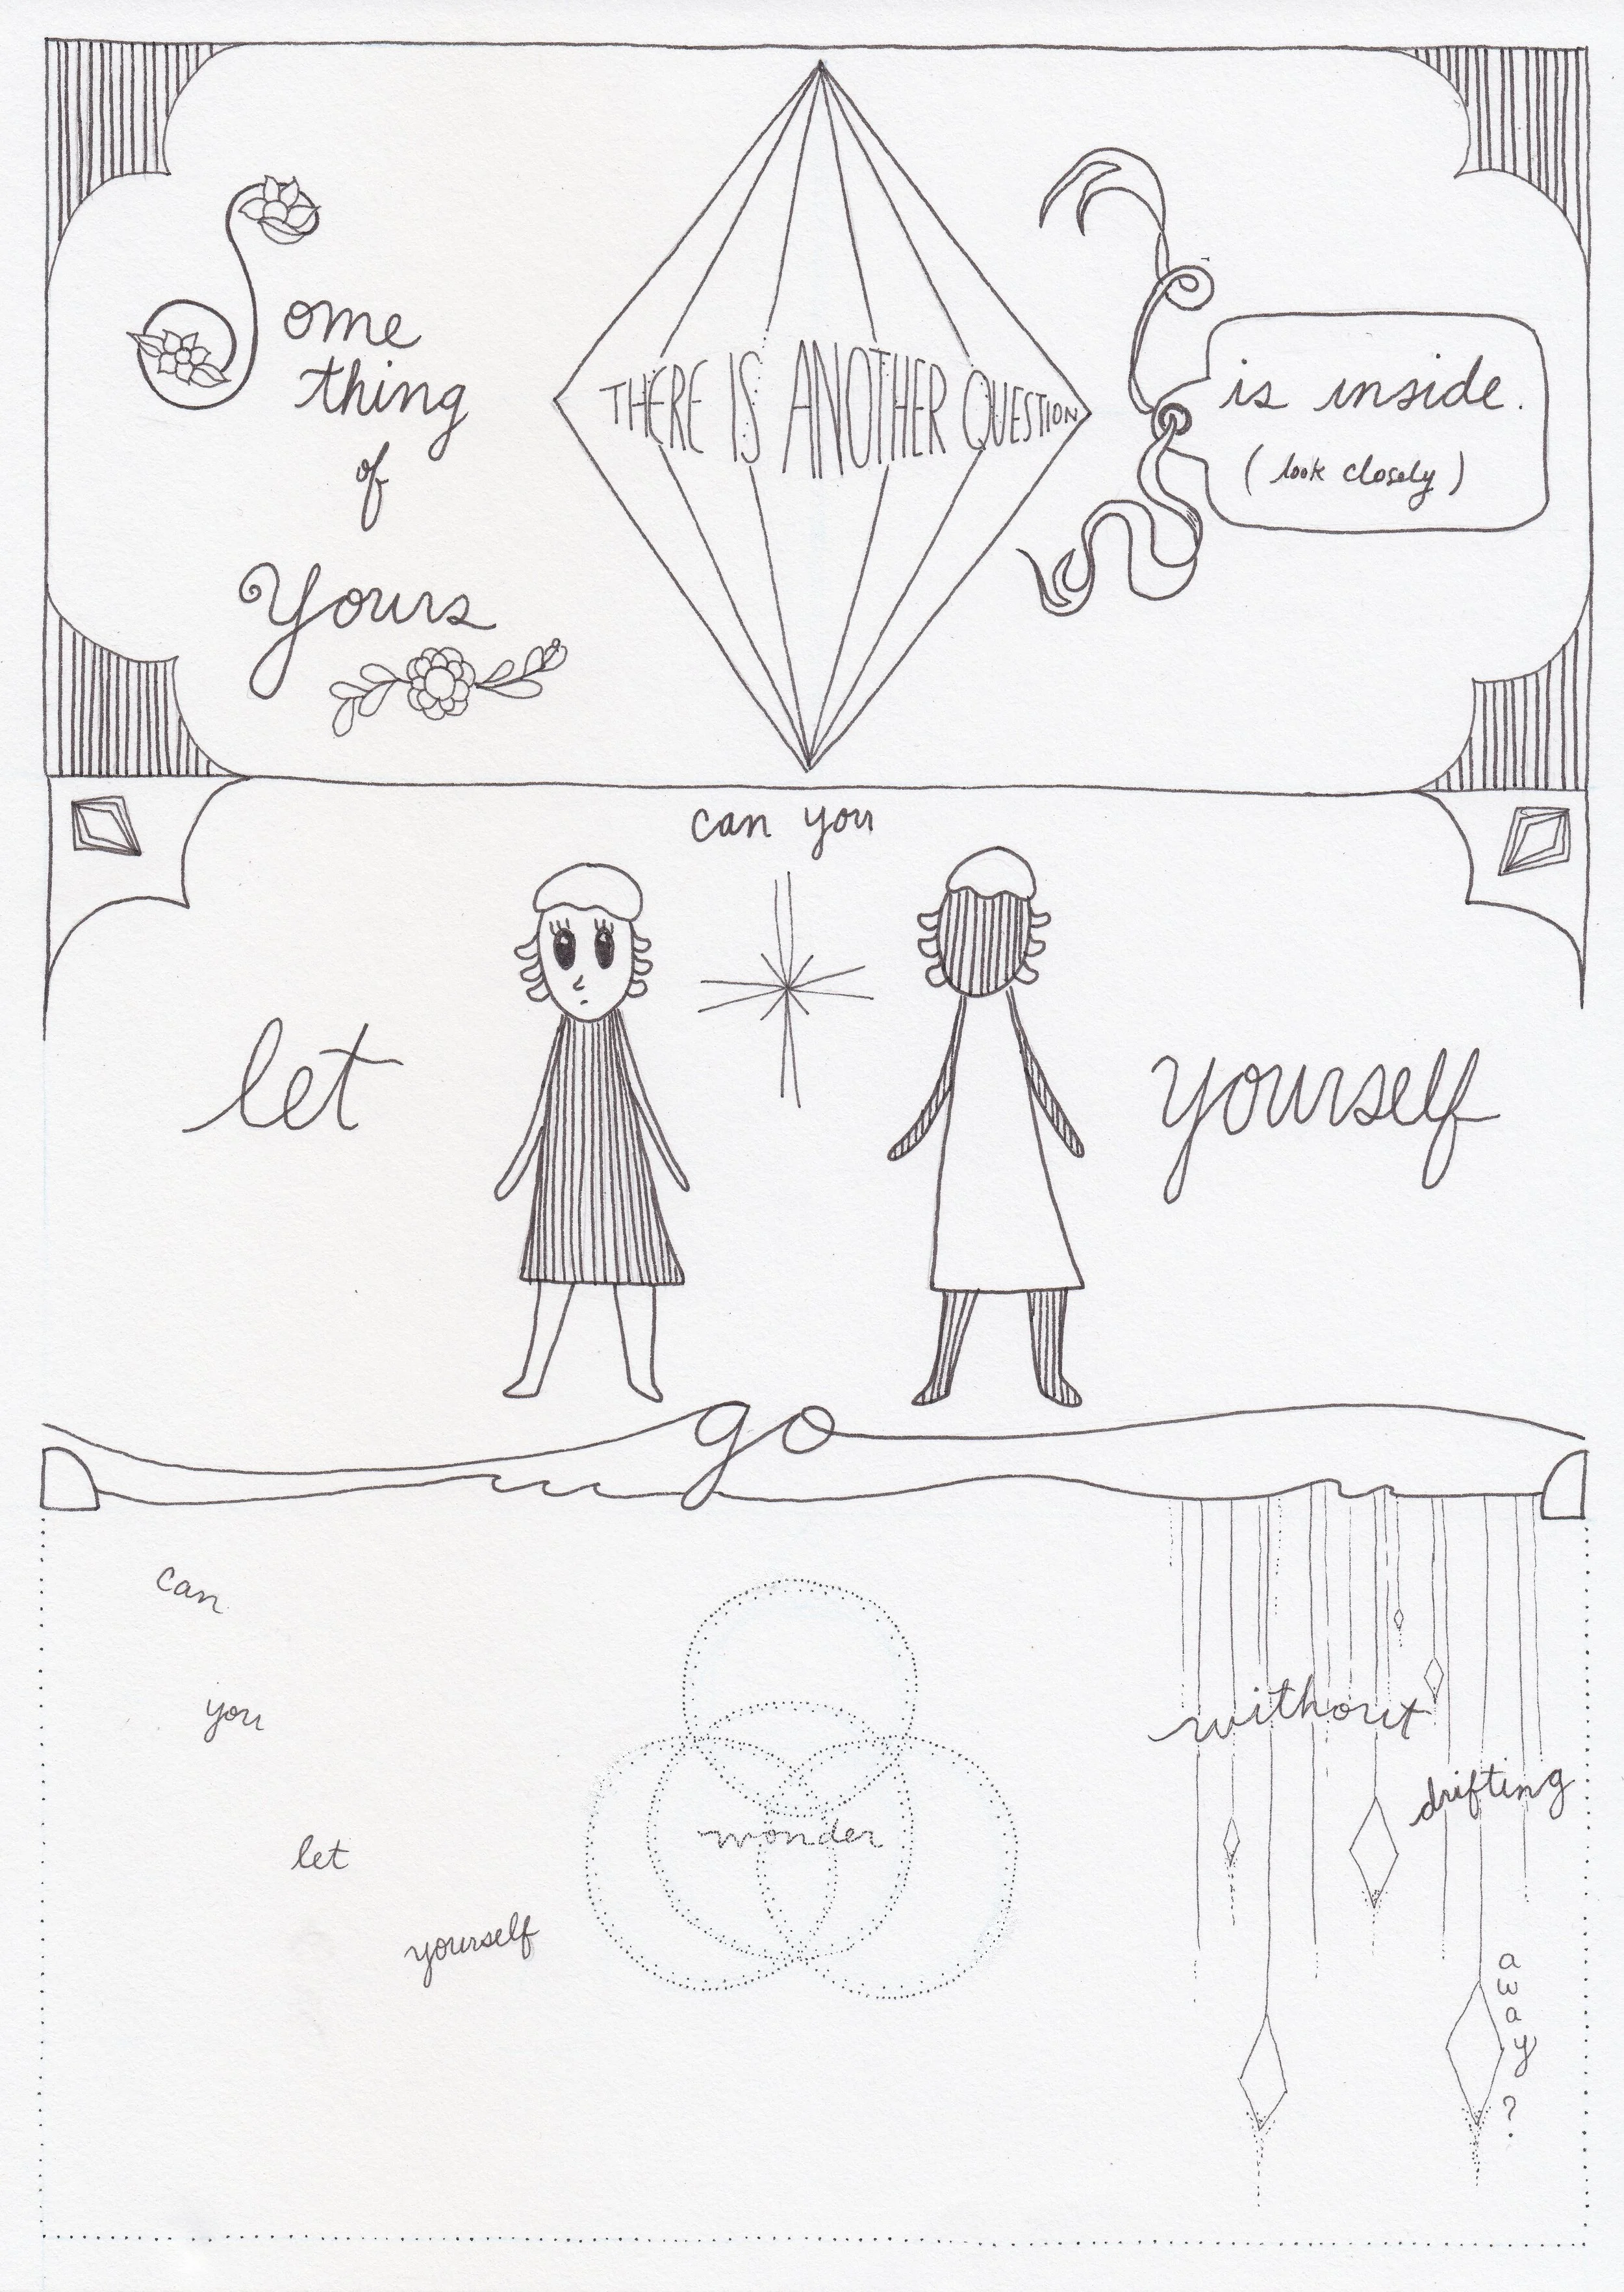 Some
thing
of
Yours
THERE IS ANOTHER QUESTION
is inside.
(look closely)
can you
let
yourself
go
can
you
let
yourself
wonder
without
drifting
away?